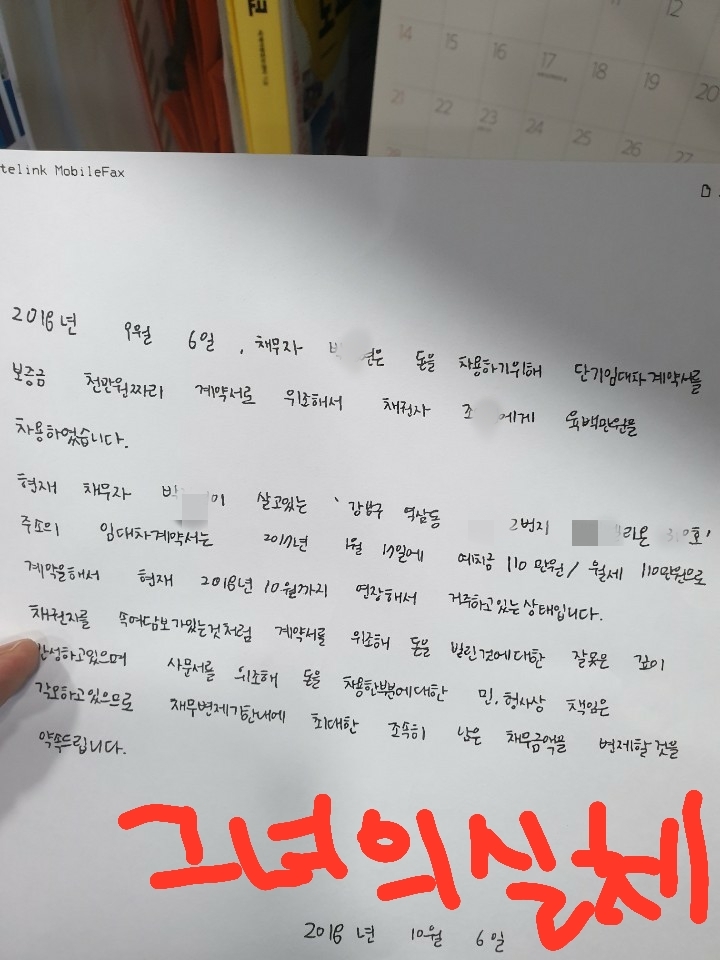 12
14 15 16 17 18 19 20
21 22 23 24 25 26 27
telink MobileFax
2018년 9월 6일, 채무자 박 현은 돈을 차용하기위해 단기임대차계약서를
보증금 천만원짜리 계약서로 위조해서 채권자 조 에게 육백만원을
차용하였습니다.
현재 채무자 박 이 살고있는 '강남구 역삼동 2번지 리온 호'
주소의 임대차계약서는 2017년 1월 17일에 예치금 110만원/월세 110만원으로
계약을해서 현재 2018년 10월까지 연장해서 거주하고있는상태입니다.
채권자를 속여담보가있는것처럼 계약서를 위조해 돈을 빌린것에대한 잘못은 깊이
반성하고있으며 사문서를 위조해 돈을 차용한부분에대한 민.형사상 책임은
각오하고있으므로 채무변제기한내에 최대한 조속히 남은 채무금액을 변제할것을
약속드립니다.
그녀의실체
2018년 10월 6일